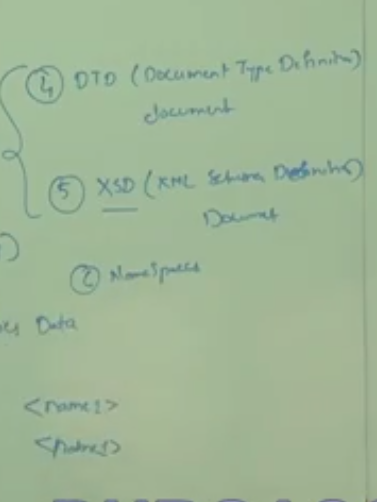 ④ DTD (Document Type Definition)
document
⑤ XSD (XML Schema Definition)
Document
② NameSpaces
Data
<name1>
<name1>